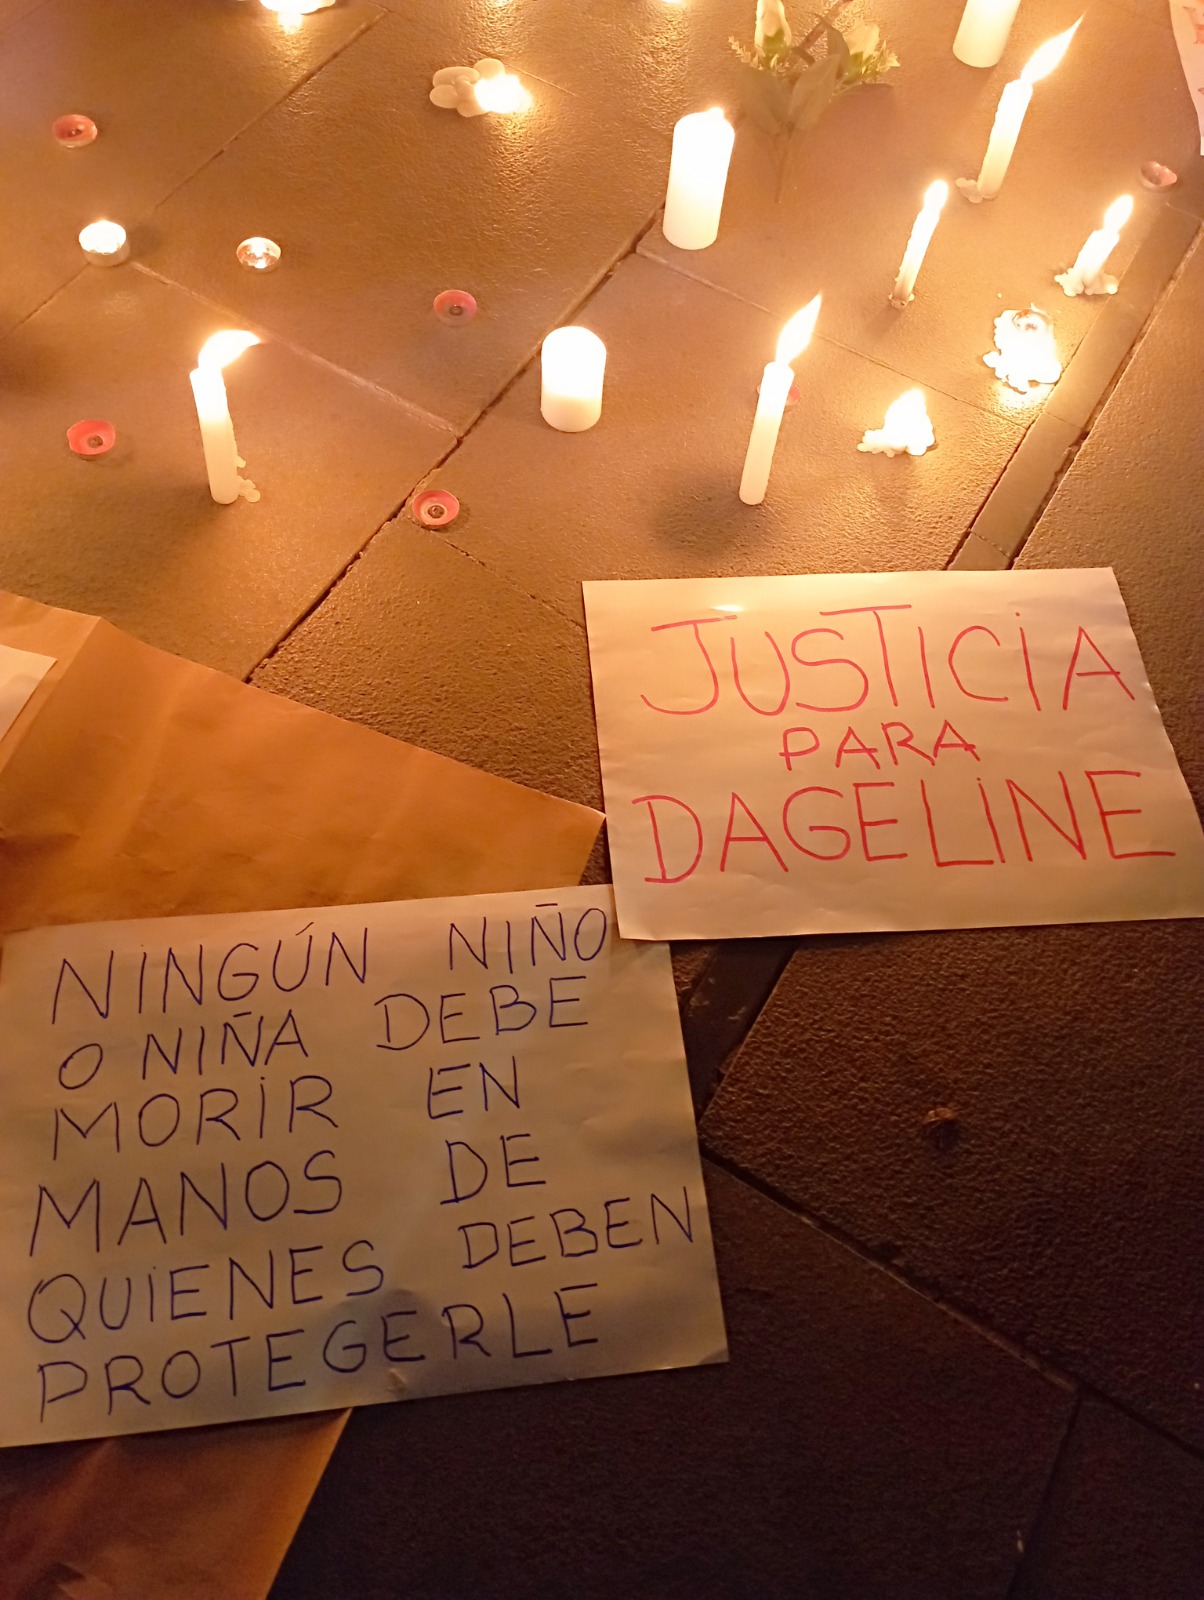 JUSTICIA
PARA
DAGELINE
NINGÚN NIÑO
O NIÑA DEBE
MORIR EN
MANOS DE
QUIENES DEBEN
PROTEGERLE